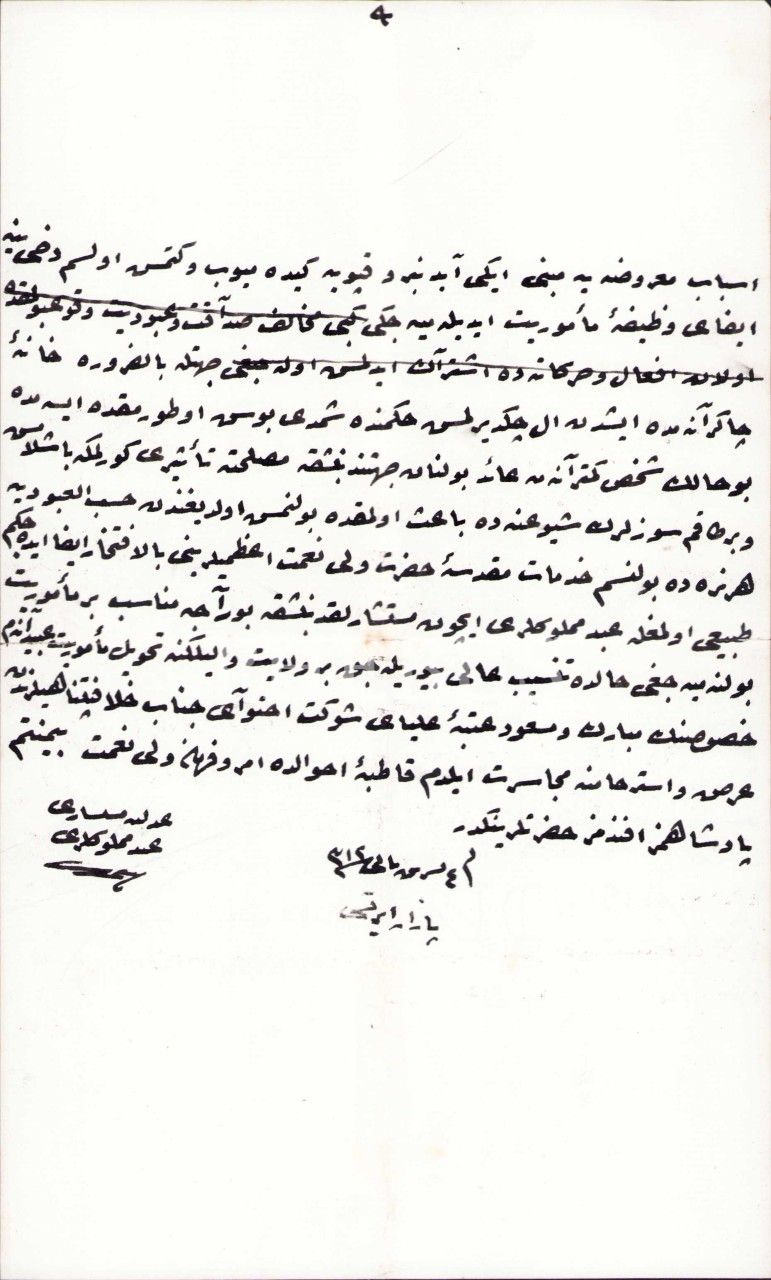 ٤
اسباب معروضه یه مبنی ایکی آیدنبرو قپویه کیده میوب وکتمش اولسم دخی ینه
ایفای وظیفهٔ مأموریت ایدیله میه جکی کبی مخالف صداقت وعبودیت وقوعبولمقده
اولان افعال وحرکاتده اشتراک ایدلمش اوله جغی جهتله بالضروره خانهٔ
چاکرانه مده ایشدن ال چکدیرلمش حکمنده شمدی یه اوطورمقده ایسه مده
بو حالك شخص کمترانه مه عائد بولنان جهتندن بشقه مصلحته تأثیری کورلمکه باشلامش
وبرطاقم سوزلرك شیوعنه ده باعث اولمقده بولنمش اولدیغندن حسب العبودیه
هر نره ده بولنسم خدمات مقدسهٔ حضرت ولی نعمت اعظمیلرینی بالافتخار ایفا ایده جکم
طبیعی اولمغله عبد مملوکلری ایچون مستشارلقدن بشقه بورآجه مناسب بر مأموریت
بولنه میه جغی حالده تنسیب عالی بیوریله جق بر ولایت والیلکنه تحویل مأموریت عبیدانه م
خصوصنك مبارك ومسعود عتبهٔ علیای شوکت احتوای جناب خلافتپناهیلرندن
عرض واسترحامنه مجاسرت ایلدم قاطبهٔ احوالده امر وفرمان ولی نعمت بیمنتم
پادشاهمز افندمز حضرتلرینکدر
٣١٢
پازار ایرتسی
عدلیه مستشاری
عبد مملوکلری